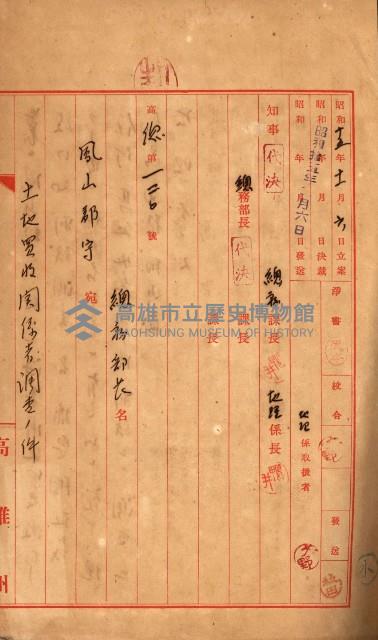 昭和十五年十一月六日立案
昭和 年 月 日決裁
昭和 年 月 日發送
昭和拾五年 月六日
淨書
校合
發送
地理係取扱者
知事 代決
總務部長 代決
總務課長
地理係長
課長
課長
高總第一二〇號
總務部長名
鳳山郡守宛
土地買收関係者調査ノ件
高雄州
高雄市立歷史博物館
KAOHSIUNG MUSEUM OF HISTORY
小